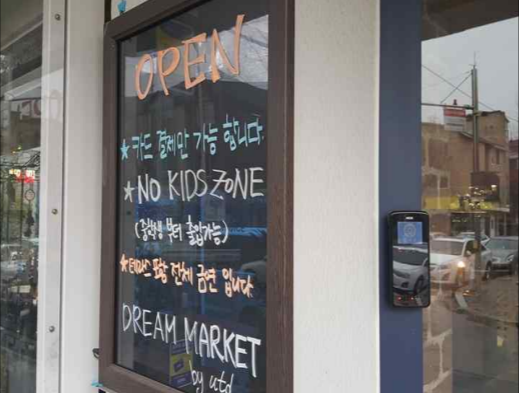 OPEN
★카드 결제만 가능 합니다.
★NO KIDS ZONE
(중학생 부터 출입가능)
★테라스 포함 전체 금연 입니다
DREAM MARKET
by utd